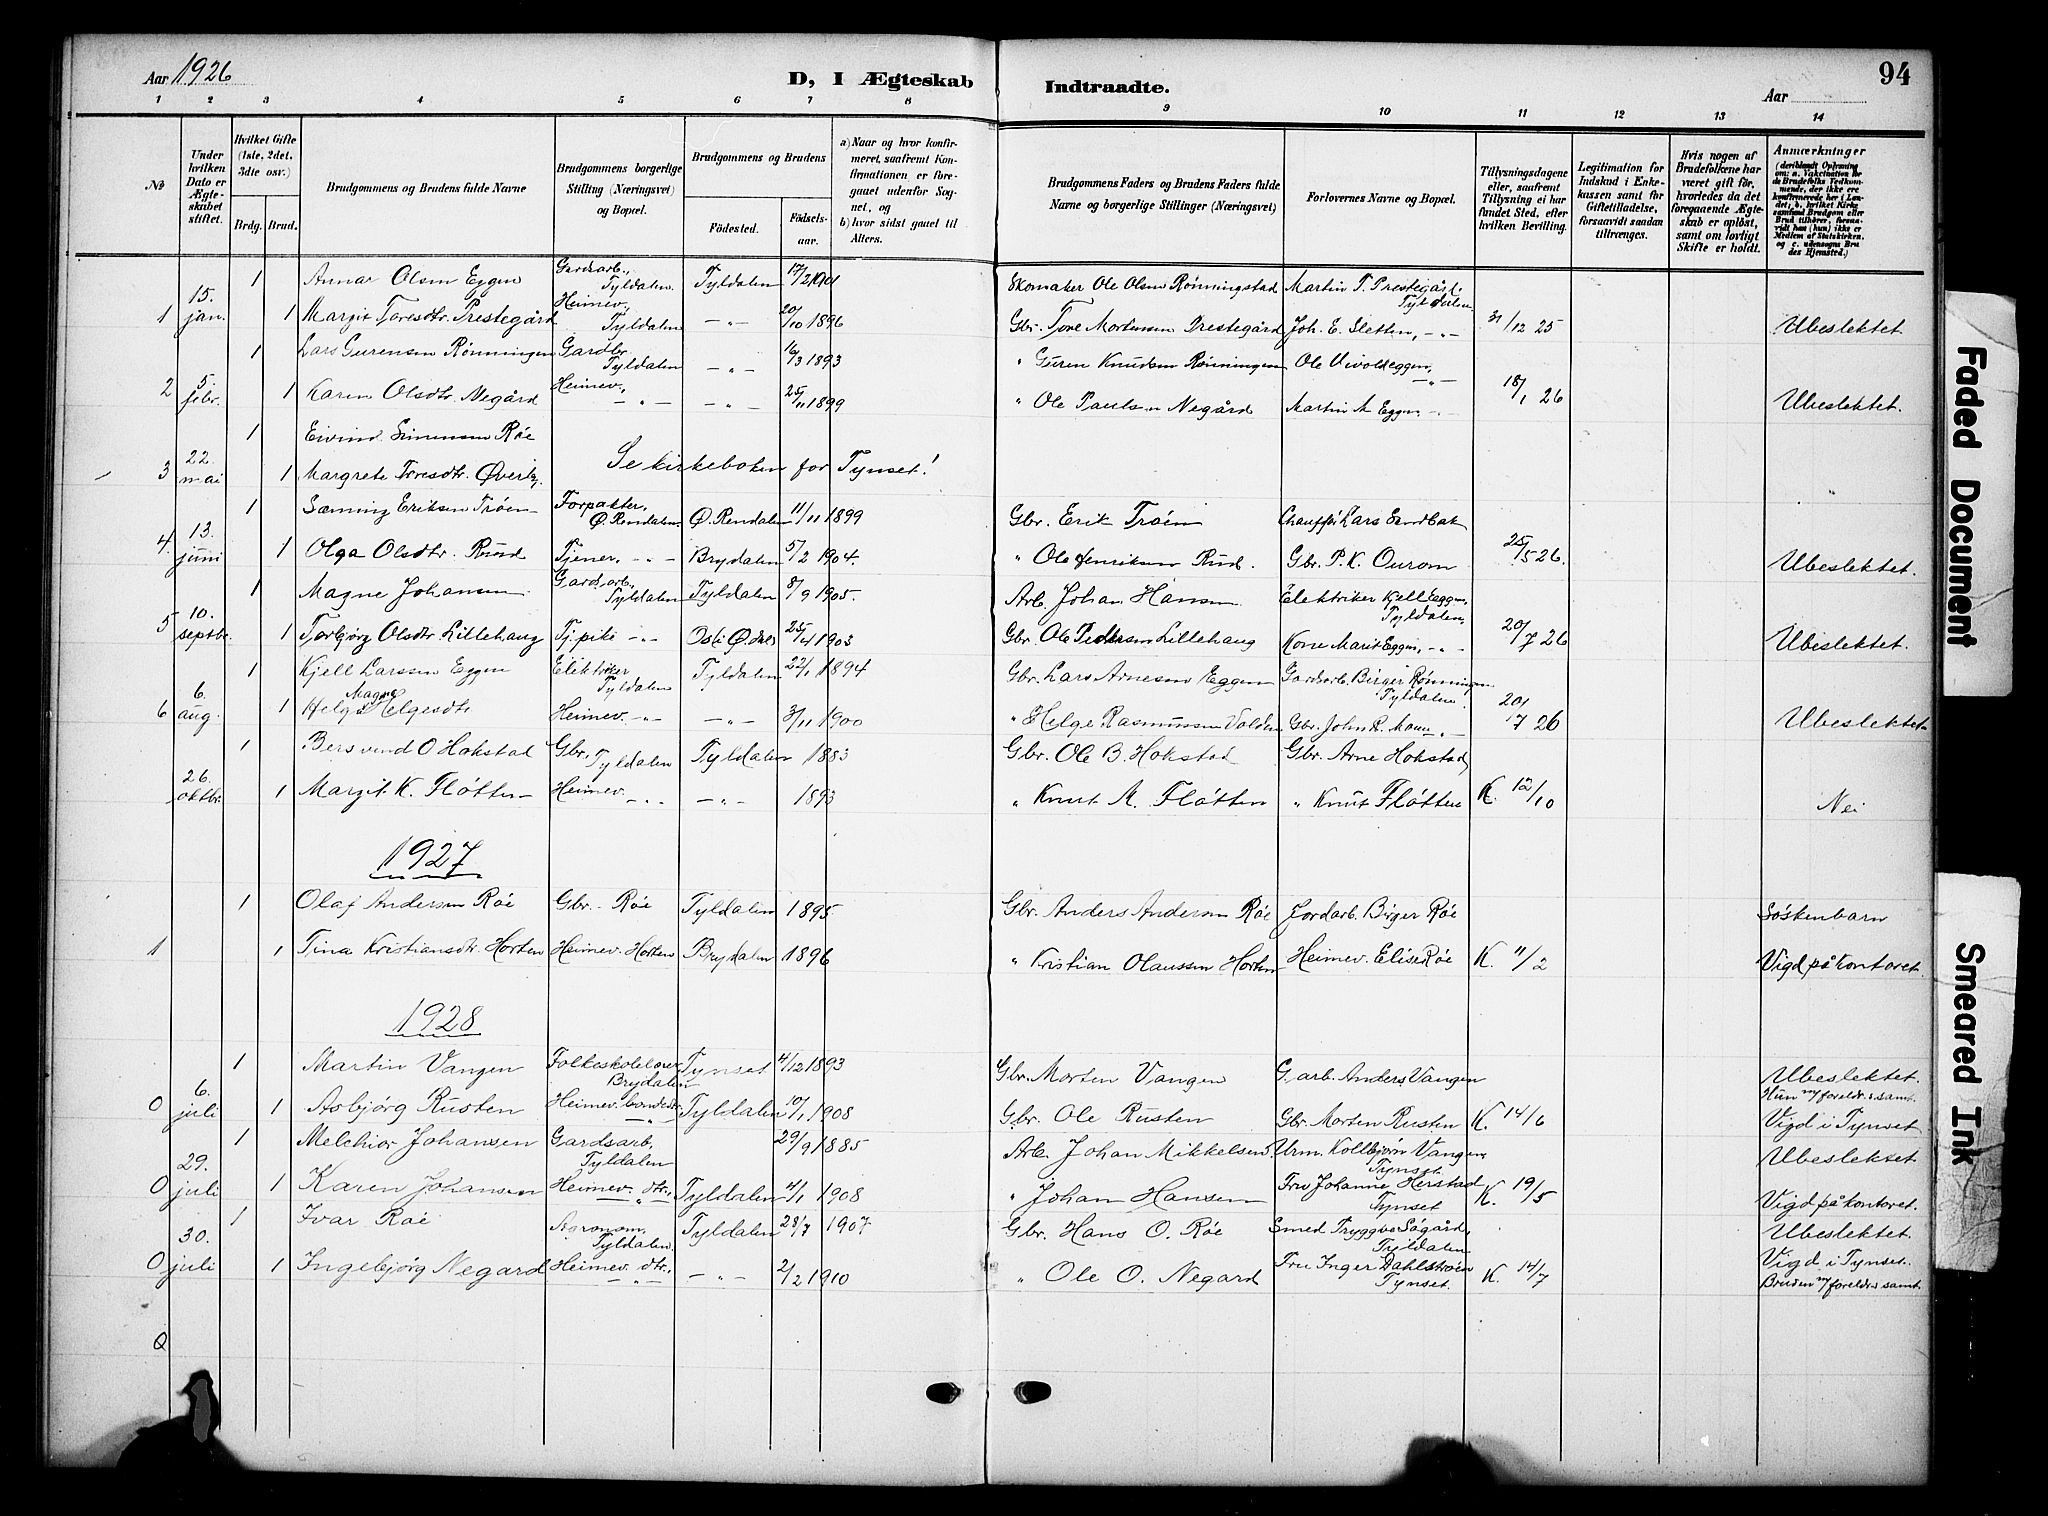 Aar 1926
D, I Ægteskab
Indtraadte.
94
Aar
1 2 3 4 5 6 7 8 9 10 11 12 13 14
No
Under hvilken Dato er Ægteskabet stiftet.
Hvilket Gifte (1ste, 2det, 3dte osv.)
Brdg. Brud.
Brudgommens og Brudens fulde Navne
Brudgommens borgerlige Stilling (Næringsvei) og Bopæl.
Brudgommens og Brudens
Fødested.
Fødselsaar.
a) Naar og hvor konfirmeret, saafremt Konfirmationen er foregaaet udenfor Sognet, og
b) hvor sidst gaaet til Alters.
Brudgommens Faders og Brudens Faders fulde Navne og borgerlige Stillinger (Næringsvei)
Forlovernes Navne og Bopæl.
Tillysningsdagene eller, saafremt Tillysning ei har fundet Sted, efter hvilken Bevilling.
Legitimation for Indskud i Enkekassen samt for Giftetilladelse, forsaavidt saadan tiltrænges.
Hvis nogen af Brudefolkene har været gift før, hvorledes da det foregaaende Ægteskab er opløst, samt om lovligt Skifte er holdt.
Anmærkninger
(deriblandt Oplysning om: a. Vaksination for de Brudefolks Vedkommende, der ikke ere konfirmerede her i Landet; b. hvilket Kirkesamfund Brudgom eller Brud tilhører, forsaavidt han (hun) ikke er Medlem af Statskirken, og c. udensogns Brudes Hjemsted.)
1 Annar Olsen Eggen Gardsarb., Tyldalen. Tyldalen 17/2 1901 Skomaker Ole Olsen Rønningstad Martin T. Prestegård, Tyldalen
1 15. jan. 1 Margit Toresdtr. Prestegård Heimev., Tyldalen -"- 20/10 1896 Gbr. Tore Mortensen Prestegård Joh. E. Sletten, -"- 31/12 25 Ubeslektet.
1 Lars Gurensen Rønningen Gardbr. Tyldalen -"- 16/3 1893 " Guren Knudsen Rønningen Ole Uvoldeggen, -"-
2 5. febr. 1 Karen Olsdtr. Negård Heimev., -"- -"- 25/11 1899 " Ole Paulsen Negård Martin M. Eggen -"- 18/1 26 Ubeslektet.
1 Eivind Simensen Røe
3 22. mai 1 Margrete Toresdtr. Øverby. Se kirkeboken for Tynset!
1 Sæming Eriksen Trøen Forpakter, Ø. Rendalen. Ø. Rendalen 11/11 1899 Gbr. Erik Trøen Chauffør Lars Sandbak
4. 13. juni 1 Olga Olsdtr. Ruud Tjener, -"- Brydalen 5/2 1904. " Ole Henriksen Ruud. Gbr. P. K. Ourom 25/5 26. Ubeslektet.
1 Magne Johansen Gardsarb, Tyldalen Tyldalen 8/9 1905. Arb. Johan Hansen Elektriker Kjell Eggen, Tyldalen
5 10. septbr. 1 Torbjørg Olsdtr. Lillehaug Tj.pike -"- 25/4 1903 Gbr. Ole Pedersen Lillehaug Kone Marit Eggen, -"- 20/7 26 Ubeslektet.
1 Kjell Larssen Eggen Elektriker Tyldalen Tyldalen 22/1 1894 Gbr. Lars Arnesen Eggen Gardsarb. Birger Rønningen Tyldalen.
6 6. aug. 1 Helga Magna Helgesdtr Heimev. -"- -"- 3/11 1900 " Helge Rasmussen Volden Gbr. John R. Moen -"- 20/7 26 Ubeslektet
1 Bersvend O Hokstad Gbr. Tyldalen Tyldalen 1883 Gbr. Ole B. Hokstad Gbr. Arne Hokstad
26. oktbr. 1 Margit K. Fløtten Heimev. -"- -"- 1893 " Knut M. Fløtten " Knut Fløtten K. 12/10 Nei
1927
1 Olaf Andersen Røe Gbr. Røe Tyldalen 1895 Gbr. Anders Andersen Røe Jordarb. Birger Røe Søskenbarn
1 1 Tina Kristiansdtr. Horten Heimev. Horten Brydalen 1896 " Kristian Olaussen Horten Heimev. Elise Røe K. 11/2 Vigd på kontoret.
1928
1 Martin Vangen Folkeskolelærer Brydalen Tynset 4/12 1893 Gbr. Morten Vangen G.arb. Anders Vangen Ubeslektet. Hun m/foreldres samt.
0 6. juli 1 Asbjørg Rusten Heimev. bondedtr. -"- Tyldalen 10/1 1908 Gbr. Ole Rusten Gbr. Morten Rusten K. 14/6 Vigd i Tynset
1 Melchior Johansen Gardsarb, Tyldalen 29/9 1885 Arb. Johan Mikkelsen. Urm. Kolbjørn Vangen, Tynset. Ubeslektet.
0 29. juli 1 Karen Johansen Heimev. dtr., -"- Tyldalen 4/1 1908 " Johan Hansen Fru Johanne Herstad Tynset K. 19/5 Vigd på kontoret.
1 Ivar Røe Agronom, Tyldalen. Tyldalen 28/7 1907 Gbr. Hans O. Røe Smed Tryggve Søgård, Tyldalen Ubeslektet.
0 30. juli 1 Ingebjørg Negard Heimev. dtr., -"- -"- 2/2 1910 " Ole O. Negard Fru Inger Dahlstrøm Tynset. K. 14/7 Vigd i Tynset. Bruden m/foreldres samt.
0
Faded Document
Smeared Ink